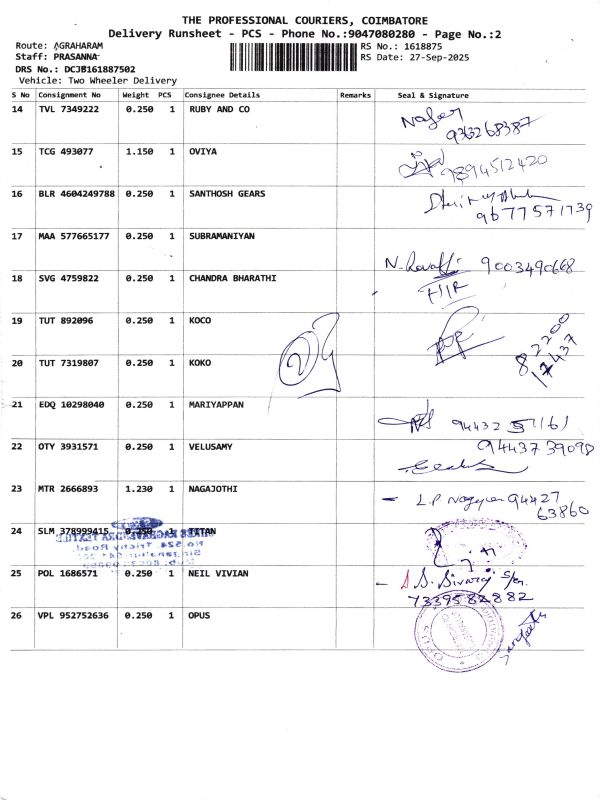 THE PROFESSIONAL COURIERS, COIMBATORE
Delivery Runsheet - PCS - Phone No.:9047080280 - Page No.:2
Route: AGRAHARAM RS No.: 1618875
Staff: PRASANNA RS Date: 27-Sep-2025
DRS No.: DCJB161887502
Vehicle: Two Wheeler Delivery
S No Consignment No Weight PCS Consignee Details Remarks Seal & Signature
14 TVL 7349222 0.250 1 RUBY AND CO
9363268387
15 TCG 493077 1.150 1 OVIYA
9894512420
16 BLR 4604249788 0.250 1 SANTHOSH GEARS
9677571739
17 MAA 577665177 0.250 1 SUBRAMANIYAN
N. Revathi 9003490668
18 SVG 4759822 0.250 1 CHANDRA BHARATHI
19 TUT 892096 0.250 1 KOCO
8 2200
12437
20 TUT 7319807 0.250 1 KOKO
21 EDQ 10298040 0.250 1 MARIYAPPAN
94432 51161
22 OTY 3931571 0.250 1 VELUSAMY
94437 39090
23 MTR 2666893 1.230 1 NAGAJOTHI
- L.P 94427
63860
24 SLM 378999415 0.250 1 TITAN
25 POL 1686571 0.250 1 NEIL VIVIAN
- S.S. Sivaraj
7339582882
26 VPL 952752636 0.250 1 OPUS